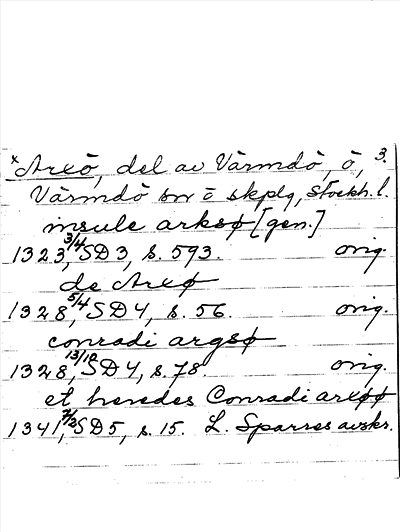 x Arxö, del av Värmdö, ö, 3.
Värmdö sn o skplg, Stockh. l.
insule arksø [gen.]
1323, 3/4 SD 3, s. 593. orig.
de Arxø
1328, 5/4 SD 4, s. 56. orig.
conradi argsø
1328, 13/10 SD 4, s. 78. orig.
et heredes Conradi arxøø
1341, 7/2 SD 5, s. 15. L. Sparres avskr.